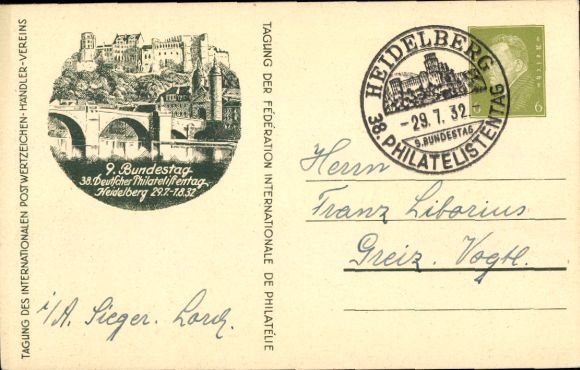 TAGUNG DES INTERNATIONALEN POSTWERTZEICHEN-HÄNDLER-VEREINS
9. Bundestag
38. Deutscher Philatelistentag
Heidelberg 29.7.-1.8.32
TAGUNG DER FÉDÉRATION INTERNATIONALE DE PHILATÉLIE
HEIDELBERG
-29.7.32.-
9. BUNDESTAG
38. PHILATELISTENTAG
6
Herrn
Franz Liborius
Greiz. Vogtl.
i/A. Sieger. Lorch.